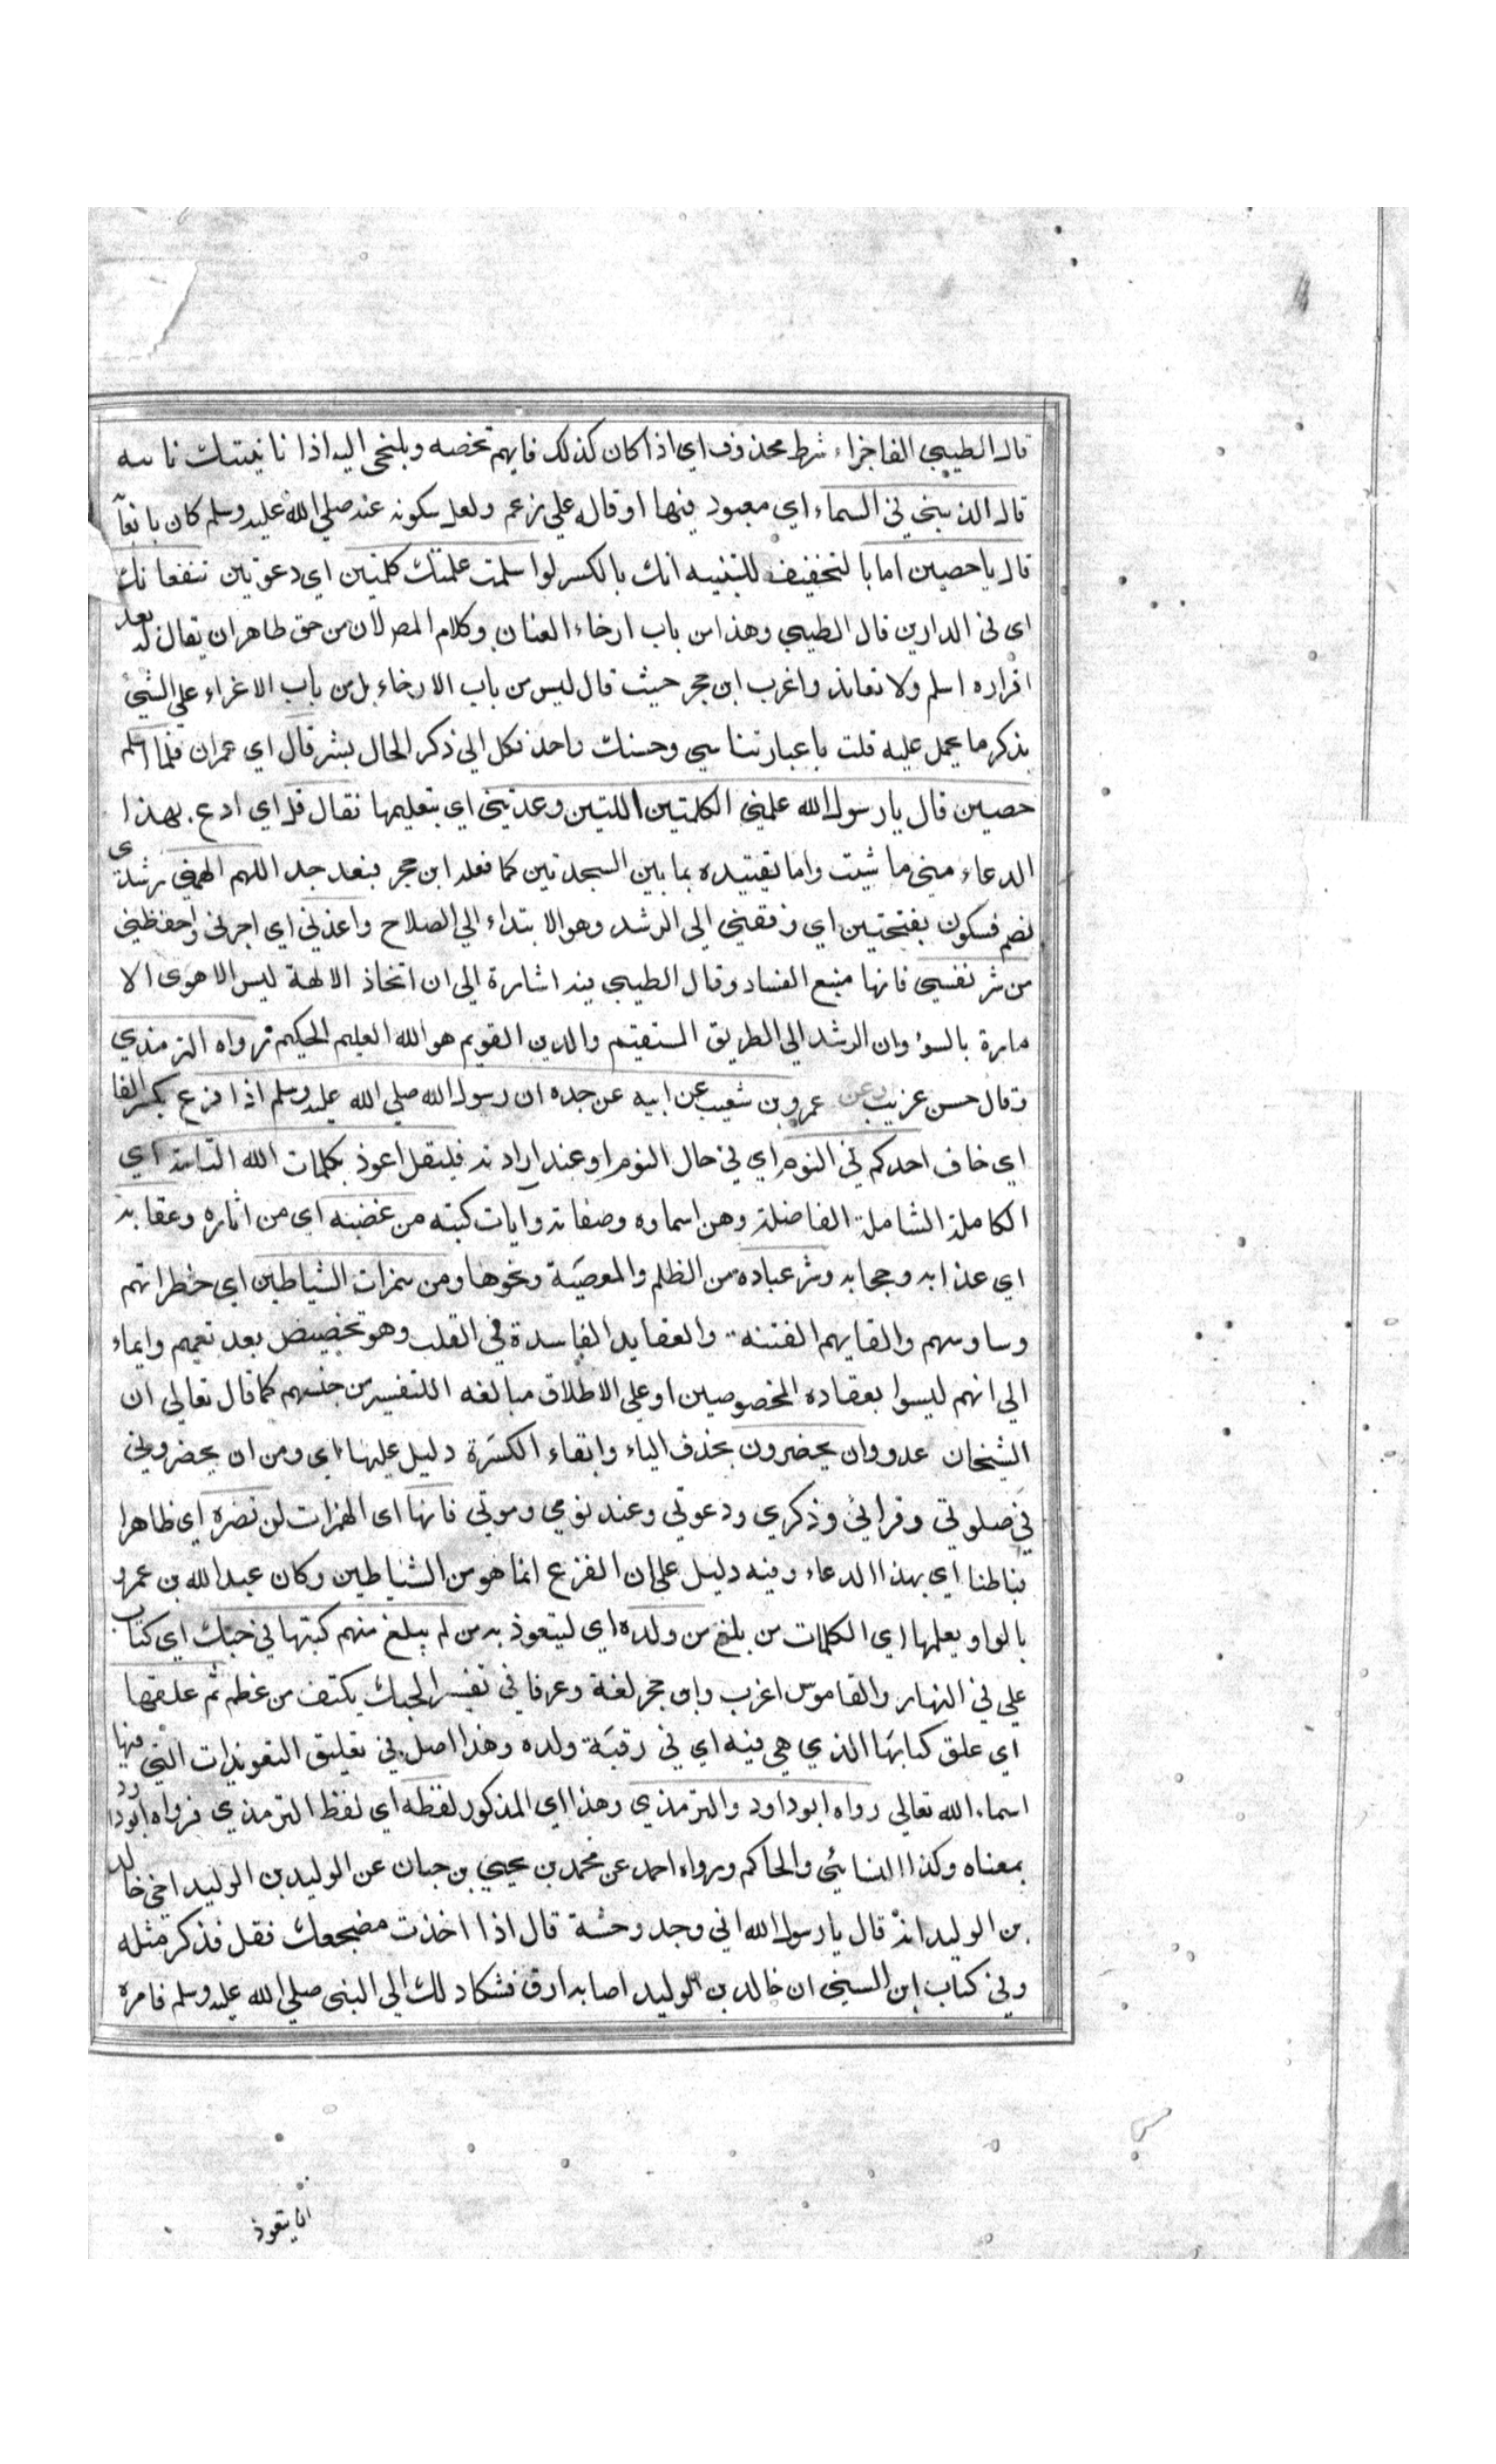 قال الطيبي الفا جزاء شرط محذوف اي اذا كان كذلك فايهم تخصه ويلتجى اليه اذا نابتك نابيه
قال الذي في السماء اي معبود فيها او قاله على زعم ولعل سكوته عنه صلي الله عليه وسلم كان بانعا
قال يا حصين اما بالتخفيف للتنبيه انك بالكسر لو اسلمت علمتك كلمتين اي دعوتين تنفعانك
اى في الدارين قال الطيبي وهذا من باب ارخاء العنان وكلام المص لان من حق ظاهر ان يقال له بعد
اقراره اسلم ولا تعاند واغرب ابن حجر حيث قال ليس من باب الارخاء بل من باب الاغراء علي الشيئ
بذكر ما يحمل عليه قلت باعبارتنا سي وحسنك واحد فكل الي ذكر الحال بشر قال اي عمران فلما اسلم
حصين قال يا رسول الله علمني الكلمتين اللتين وعدتني اي بتعليمها نقال قل اي ادع بهذا
الدعاء متي ما شيت واما تقييده بما بين السجدتين كما فعله ابن حجر فبعد جدا اللهم الهمني رشدي
بضم فسكون بفتحتين اي وفقني الى الرشد وهو الابتداء الي الصلاح واعذني اي اجرني واحفظني
من شر نفسي فانها منبع الفساد وقال الطيبي فيه اشارة الي ان اتخاذ الالهة ليس الا هوى الا
مارة بالسوء وان الرشد الي الطريق المستقيم والدين القويم هو الله العليم الحكيم رواه الترمذي
وقال حسن غريب وعن عمرو بن شعيب عن ابيه عن جده ان رسول الله صلي الله عليه وسلم اذا فزع بكسر الفا
اي خاف احدكم في النوم اي في حال النوم او عند ارادته فليقل اعوذ بكلمات الله التامة اي
الكاملة الشاملة الفاضلة وهن اسماوه وصفاته وآيات كتبه من غضبه اي من اثاره وعقابه
اي عذابه وحجابه وشر عباده من الظلم والمعصية ونحوها ومن همزات الشياطين اي خطراتهم
وساوسهم والقايهم الفتنة والعقايد الفاسدة في القلب وهو تخصيص بعد تعميم وايماء
الي انهم ليسوا بعقاده المخصوصين او علي الاطلاق مبالغه اللتفسير من جنسهم كما قال تعالي ان
الشيخان عدو وان يحضرون بحذف الياء وابقاء الكسرة دليل عليها اي ومن ان يحضروني
في صلوتي وقرائي وذكري ودعوتي وعند نومي وموتي فانها اى الهمزات لن تضره اي ظاهرا
فباطنا اي بهذا الدعاء وفيه دليل علي ان الفزع انما هو من الشياطين وكان عبد الله بن عمرو
بالواو يعلمها اي الكلمات من بلغ من ولده اي ليتعوذ به من لم يبلغ منهم كتبها في حبك اي كتاب
علي في النهار والقاموس اغرب وابن حجر لغة وعرفا في تفسير الحبك يكتف من عظم ثم علقها
اي علق كتابها الذي هي فيه اي في رقبة ولده وهذا اصل في تعليق التعويذات التي فيها
اسماء الله تعالي رواه ابو داود والترمذي وهذا اي المذكور لفظه اي لفظ الترمذي فرواه ابو داود
بمعناه وكذا النسائي والحاكم ورواه احمد عن محمد بن يحيي بن حبان عن الوليد بن الوليد اخي خالد
بن الوليد انه قال يا رسول الله اني وجد وحشة قال اذا اخذت مضجعك فقل فذكر مثله
وفي كتاب ابن السني ان خالد بن الوليد اصابه ارق فشكا ذلك الي النبي صلي الله عليه وسلم فامره
ان يتعوذ